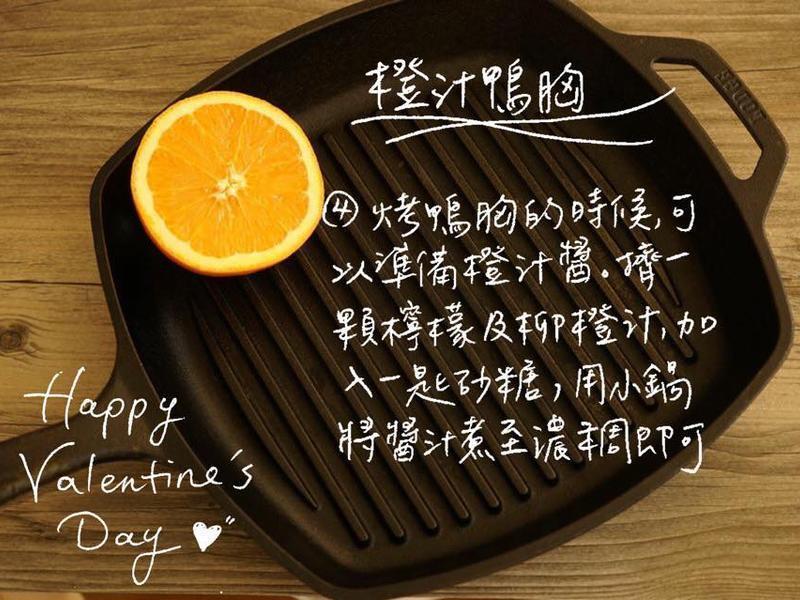 橙汁鴨胸
④ 烤鴨胸的時候,可
以準備橙汁醬。擠一
顆檸檬及柳橙汁,加
入一匙砂糖,用小鍋
將醬汁煮至濃稠即可
Happy
Valentine's
Day